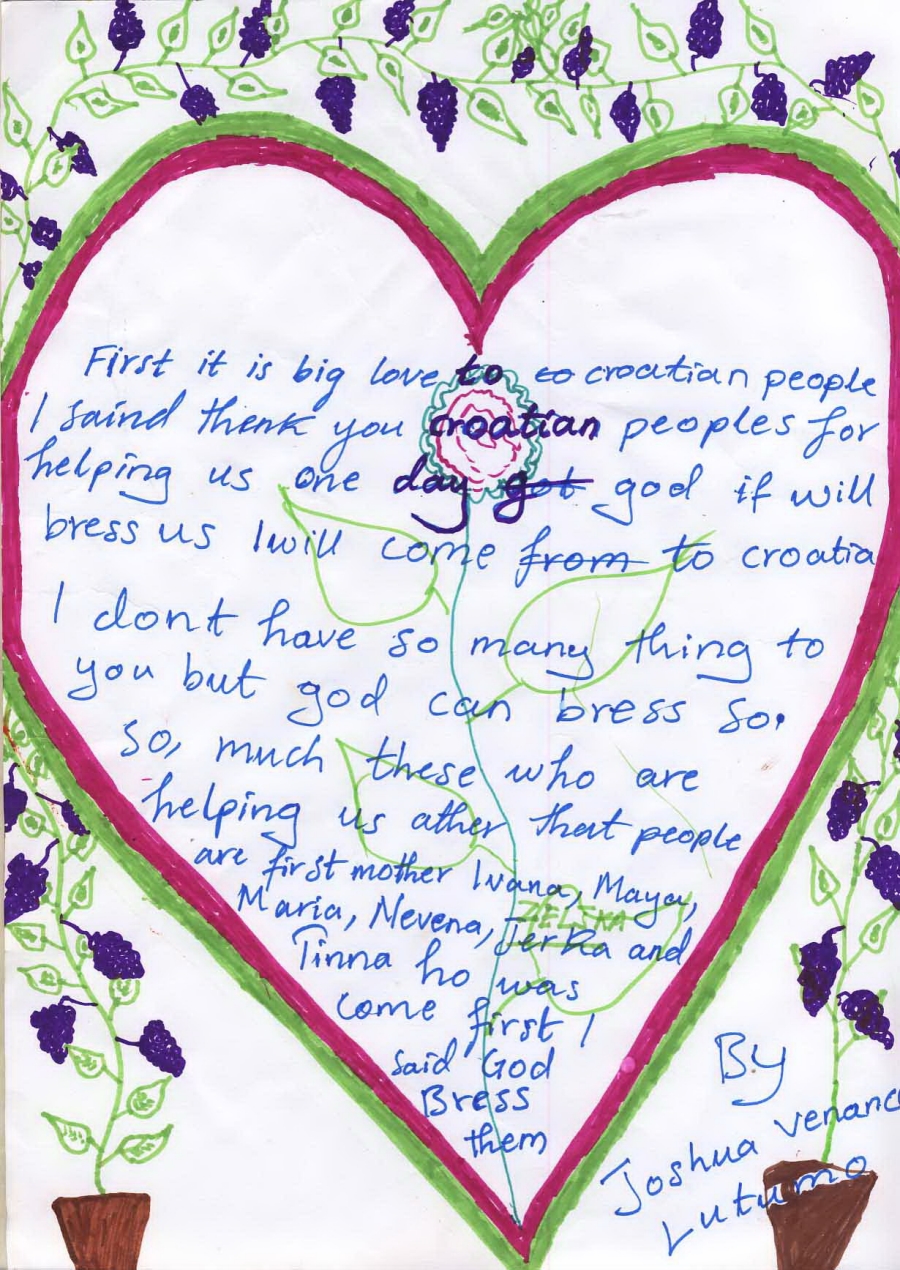 First it is big love to to croatian people
I saind thenk you croatian peoples for
helping us one day got god if will
bress us I will come from to croatia
I dont have so many thing to
you but god can bress so.
so, much these who are
helping us ather that people
are first mother Ivana, Maya,
Maria, Nevena, Jerka and
ZELJKA
Tinna ho was
come first I
said God
Bress
them
By
Joshua Venance
Lutumo